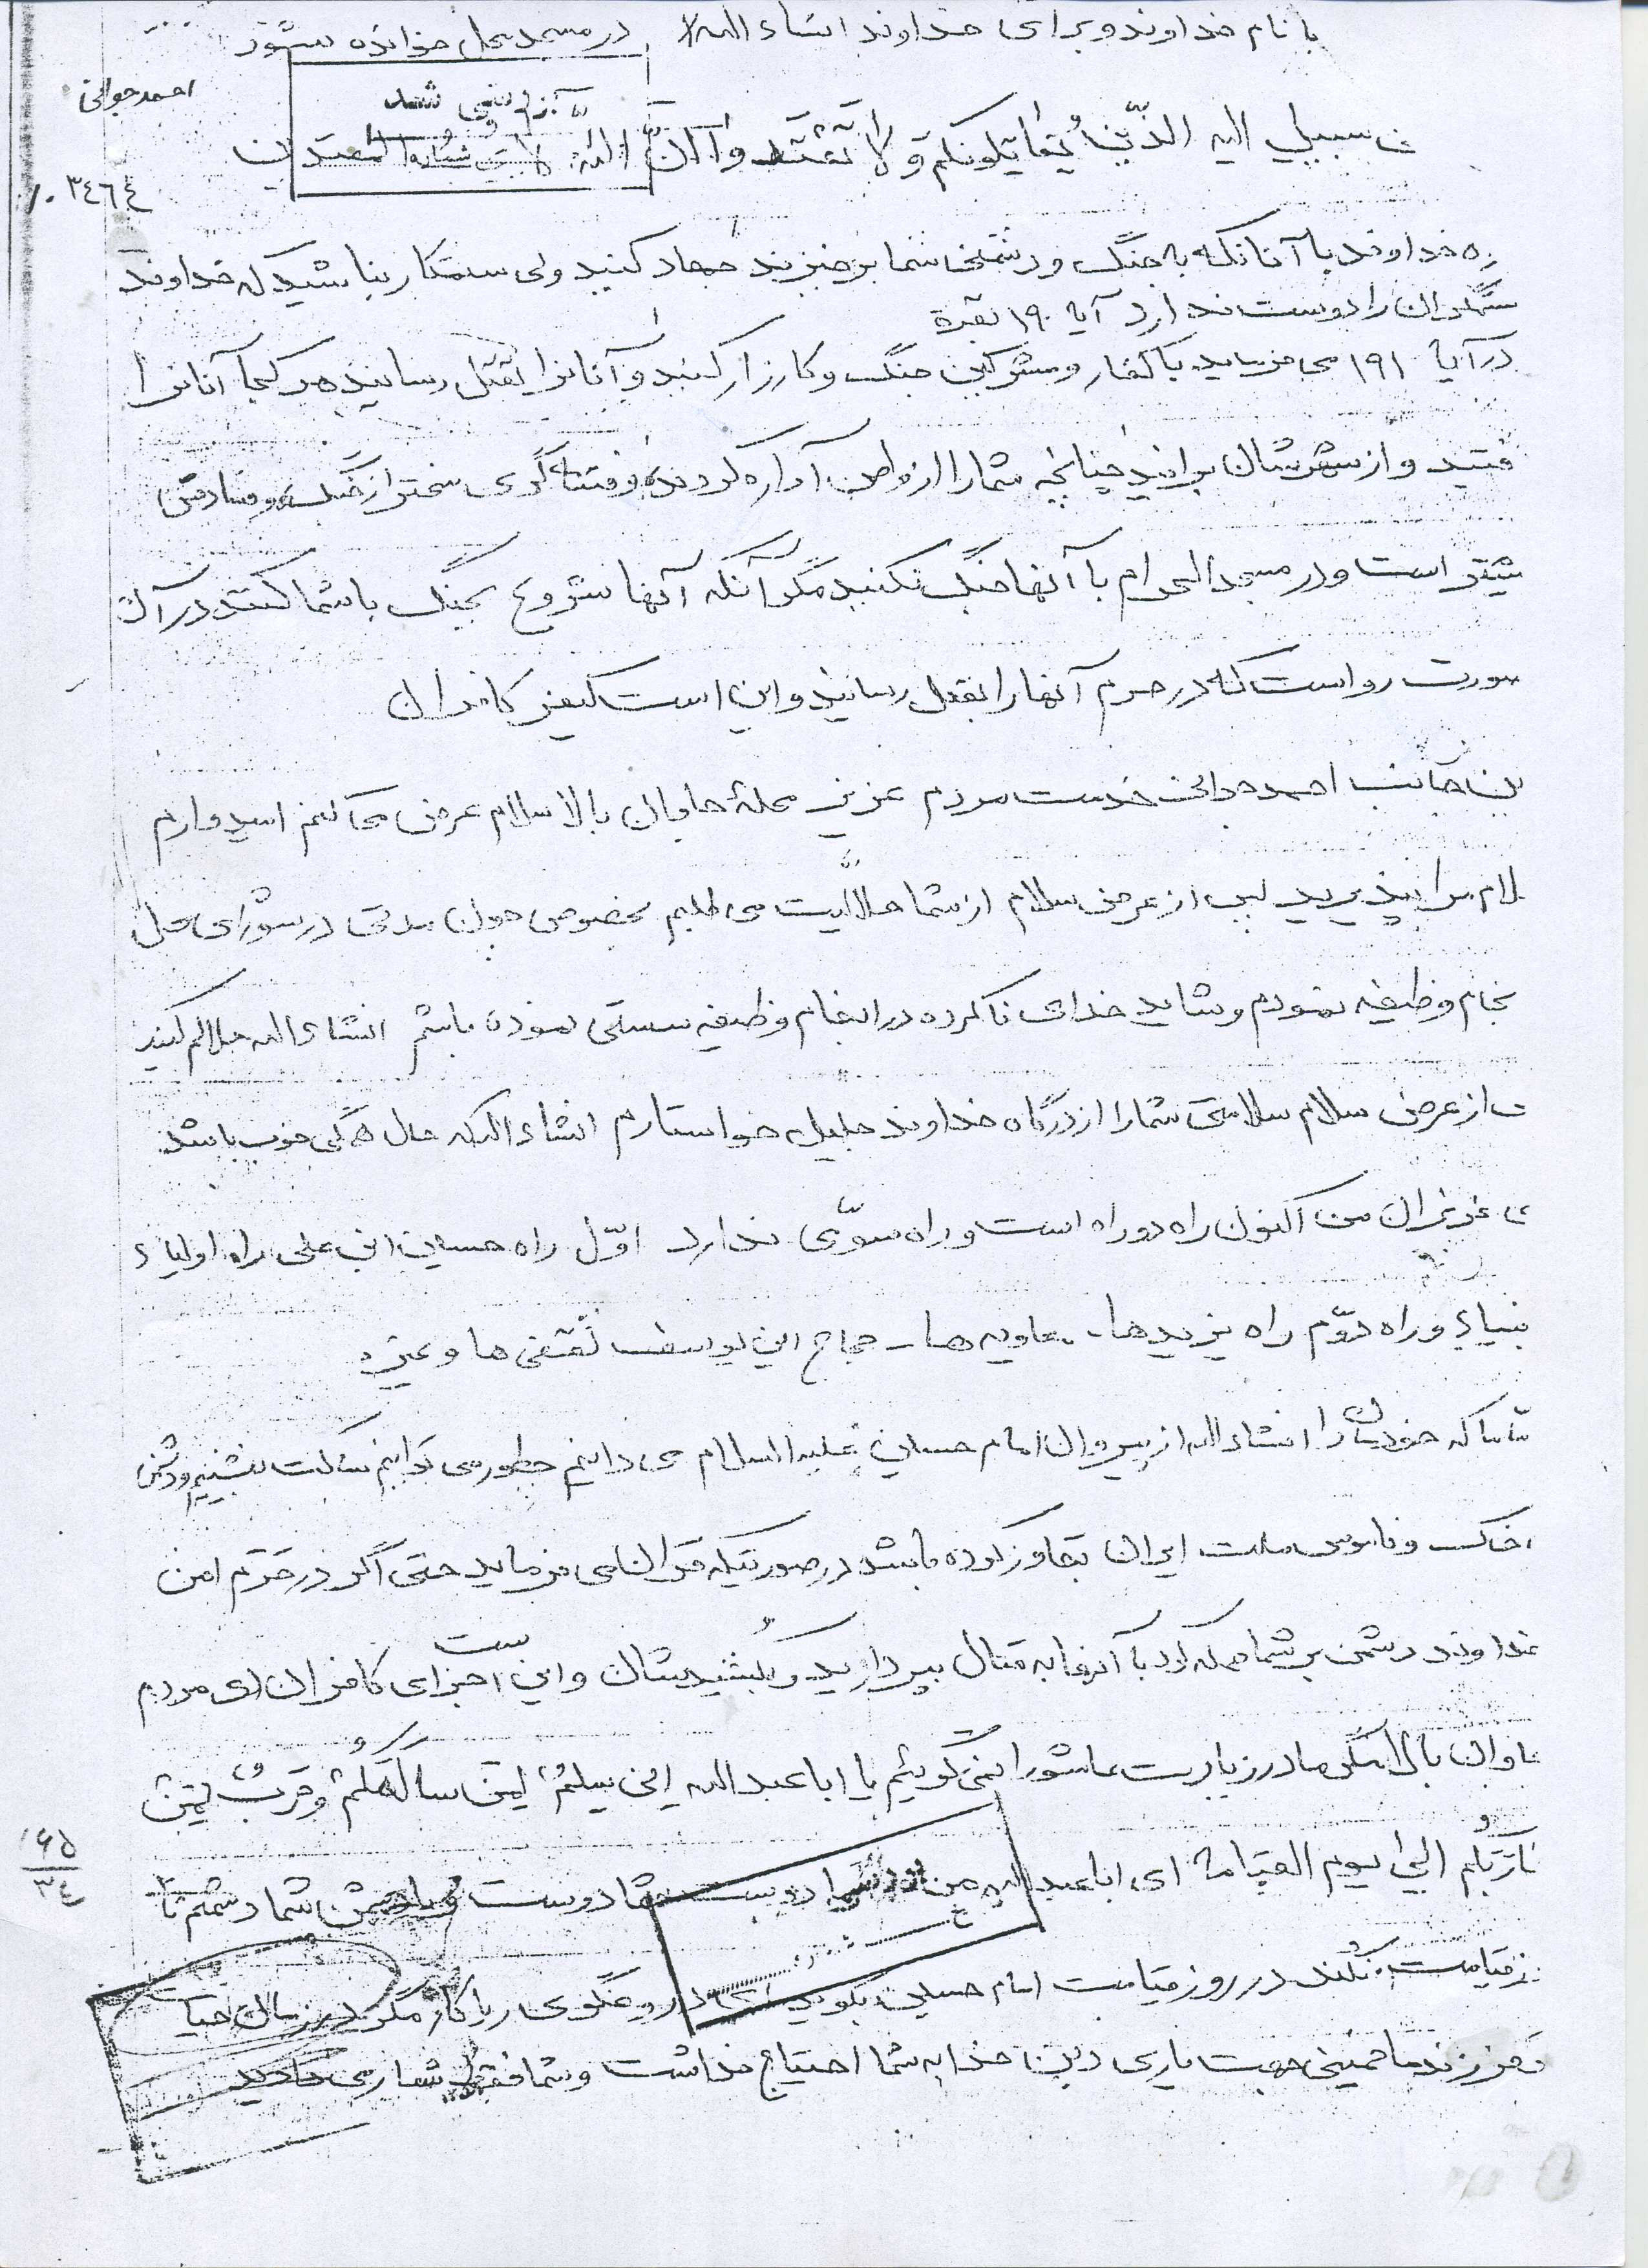 با نام خداوند و برای خداوند انشاء الله در مسجد محل خوانده شود
احمد جوالی
بازبینی شد
فی سبیلي الله الذّینُ یُقاتِلونکم وَ لا تَعتَدوا اِنَّ اللهَ لا یحب المعتدین
۳٤٦٤
ره خداوند با آنانکه به جنگ و دشمنی شما برخیزند جهاد کنید ولی ستمکار نباشید که خداوند
ستمگران را دوست ندارد آیه ۱۹۰ بقره
در آیه ۱۹۱ می فرماید با کفار و مشرکین جنگ و کارزار کنید و آنانرا بقتل رسانید هر کجا آنانرا
فتید و از شهرشان برانید چنانچه شما را از وطن آواره کردند و فتنه گری سختر از جنگ و فسادش
بیشتر است و در مسجد الحرام با آنها جنگ نکنید مگر آنکه آنها شروع بجنگ با شما کنند در آن
صورت روا است که در حرم آنها را بقتل رسانید و این است کیفر کافران
ین جانب احمد جوالی خدمت مردم عزیز محلهٔ حاوان بالا سلام عرض می کنم امیدوارم
لام مرا بپذیرید پس از عرض سلام از شما حلالّیت می طلبم بخصوص چون مدتی در شورای محل
نجام وظیفه نمودم و شاید خدای ناکرده در انجام وظیفه سستی نموده باشم انشاء الله حلالم کنید
ت از عرض سلام سلامتی شما را از درگاه خداوند جلیل خواستارم انشاء الله که حال همگی خوب باشد
ی عزیزان من اکنون راه دو راه است و راه سوّمی ندارد اوّل راه حسین ابن علی راه اولیاء
نبیاء و راه دوّم راه یزیدها - معاویه ها - حجاج ابن یوسف ثقفی ها و غیره
ما که خودمان را انشاء الله از پیروان امام حسین علیه السلام می دانیم چطور می توانیم ساکت بنشینیم و دشمن
خاک و ناموس ملت ایران تجاوز کرده باشد در صورتیکه قرآن می فرماید حتی اگر در حَرَم امن
خداوند دشمن بر شما حمله کرد با آنها به قتال بپردازید و بکشیدشان و این است جزای کافران ای مردم
حاوان بالا مگر ما در زیارت عاشورا نمی گوئیم یا ابا عبدالله اِنی سِلمٌ لِمَن سالَمَکُم وَ حَربٌ لِمَن
حارَبَکُم اِلی یوم القیامه ای ابا عبدالله من با دوست شما دوست و با دشمن شما دشمنم تا
۱۶۵
۳٤
ز قیامت نکند در روز قیامت امام حسین بگوید ای دروغگوی ریا کار مگر در زمان حیات
فرزندما خمینی جهت یاری دین خدا به شما احتیاج نداشت و شما فقط شعار می دادید